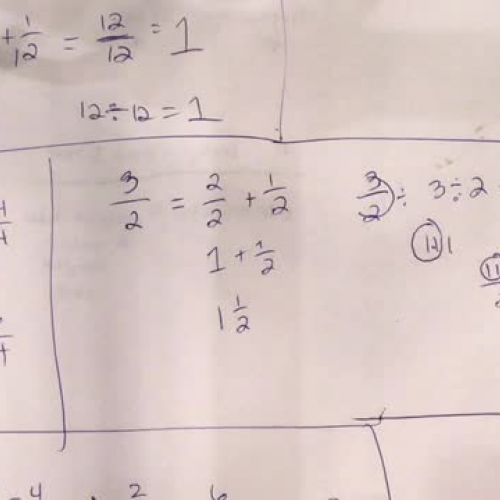 + 1/12 = 12/12 = 1
12 ÷ 12 = 1
3/2 = 2/2 + 1/2
1 + 1/2
1 1/2
3/2 ÷ 3 ÷ 2
4
2
6